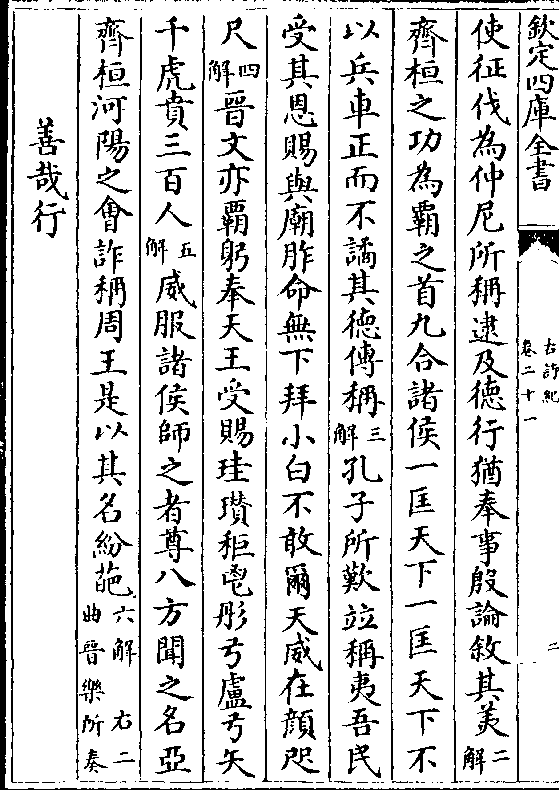 欽定四庫全書
古詩紀
卷二十一
二
使征伐為仲尼所稱逮及徳行猶奉事殷論敘其美二解
齊桓之功為霸之首九合諸侯一匡天下一匡天下不
以兵車正而不譎其徳傳稱三解孔子所歎竝稱夷吾民
受其恩賜與廟胙命無下拜小白不敢爾天威在顔咫
尺四解晉文亦霸躬奉天王受賜珪瓚秬鬯彤弓盧弓矢
千虎賁三百人五解威服諸侯師之者尊八方聞之名亞
齊桓河陽之會詐稱周王是以其名紛葩六解右二曲晉樂所奏
善哉行